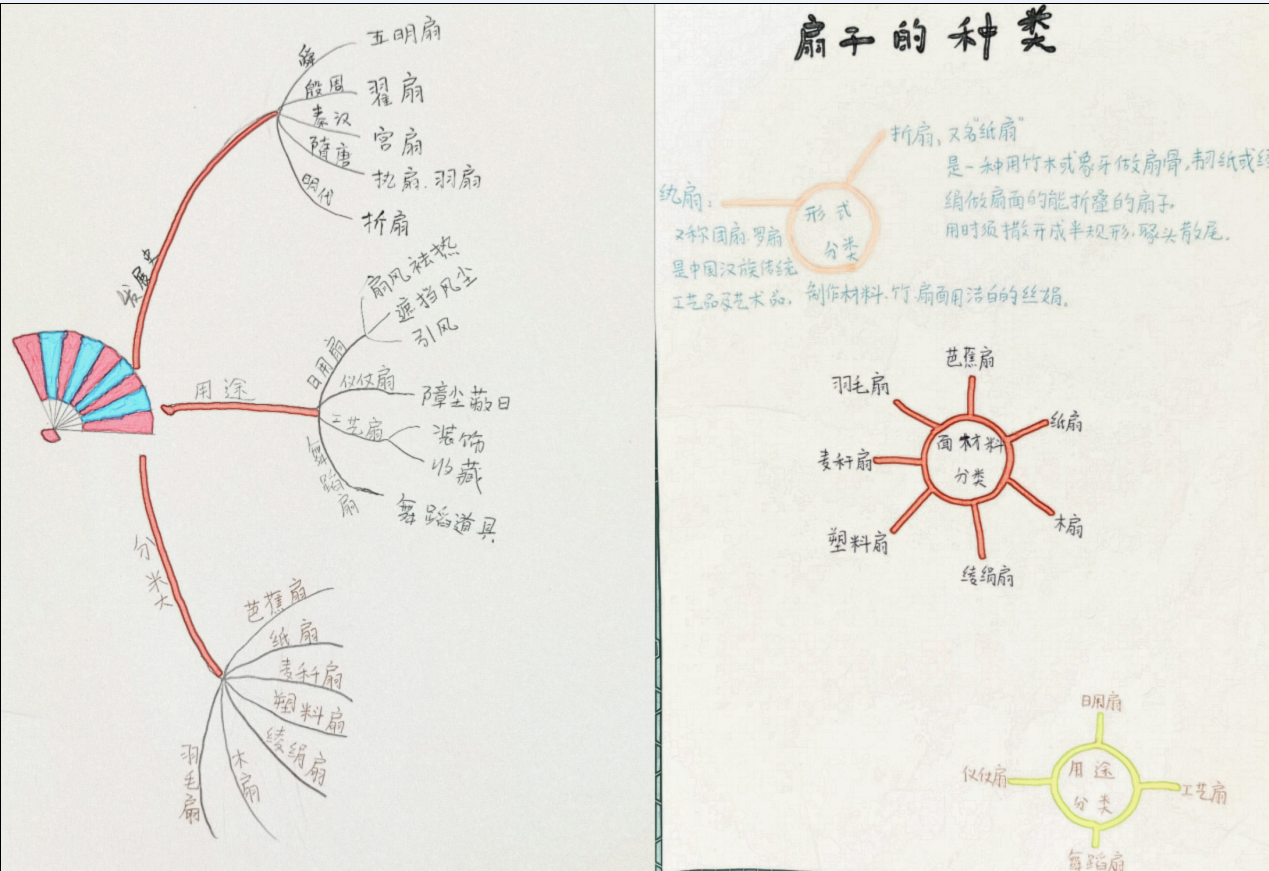 发展史
舜
五明扇
殷周
翟扇
秦汉
宫扇
隋唐
纨扇.羽扇
明代
折扇
用途
日用扇
扇风祛热
遮挡风尘
引风
仪仗扇
障尘蔽日
工艺扇
装饰
收藏
舞蹈扇
舞蹈道具
分类
芭蕉扇
纸扇
麦秆扇
塑料扇
绫绢扇
木扇
羽毛扇
扇子的种类
形式
分类
折扇,又名"纸扇"
是一种用竹木或象牙做扇骨,韧纸或
绢做扇面的能折叠的扇子。
用时须撒开成半规形,聚头散尾。
纨扇:
又称团扇.罗扇
是中国汉族传统
工艺品及艺术品,制作材料.竹.扇面用洁白的丝绢。
面材料
分类
芭蕉扇
纸扇
木扇
绫绢扇
塑料扇
麦秆扇
羽毛扇
用途
分类
日用扇
工艺扇
舞蹈扇
仪仗扇